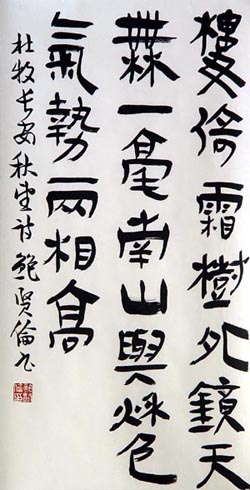 樓倚霜樹外鏡天
無一毫南山與秌色
氣勢兩相高
杜牧長安秋望诗鲍贤倫书